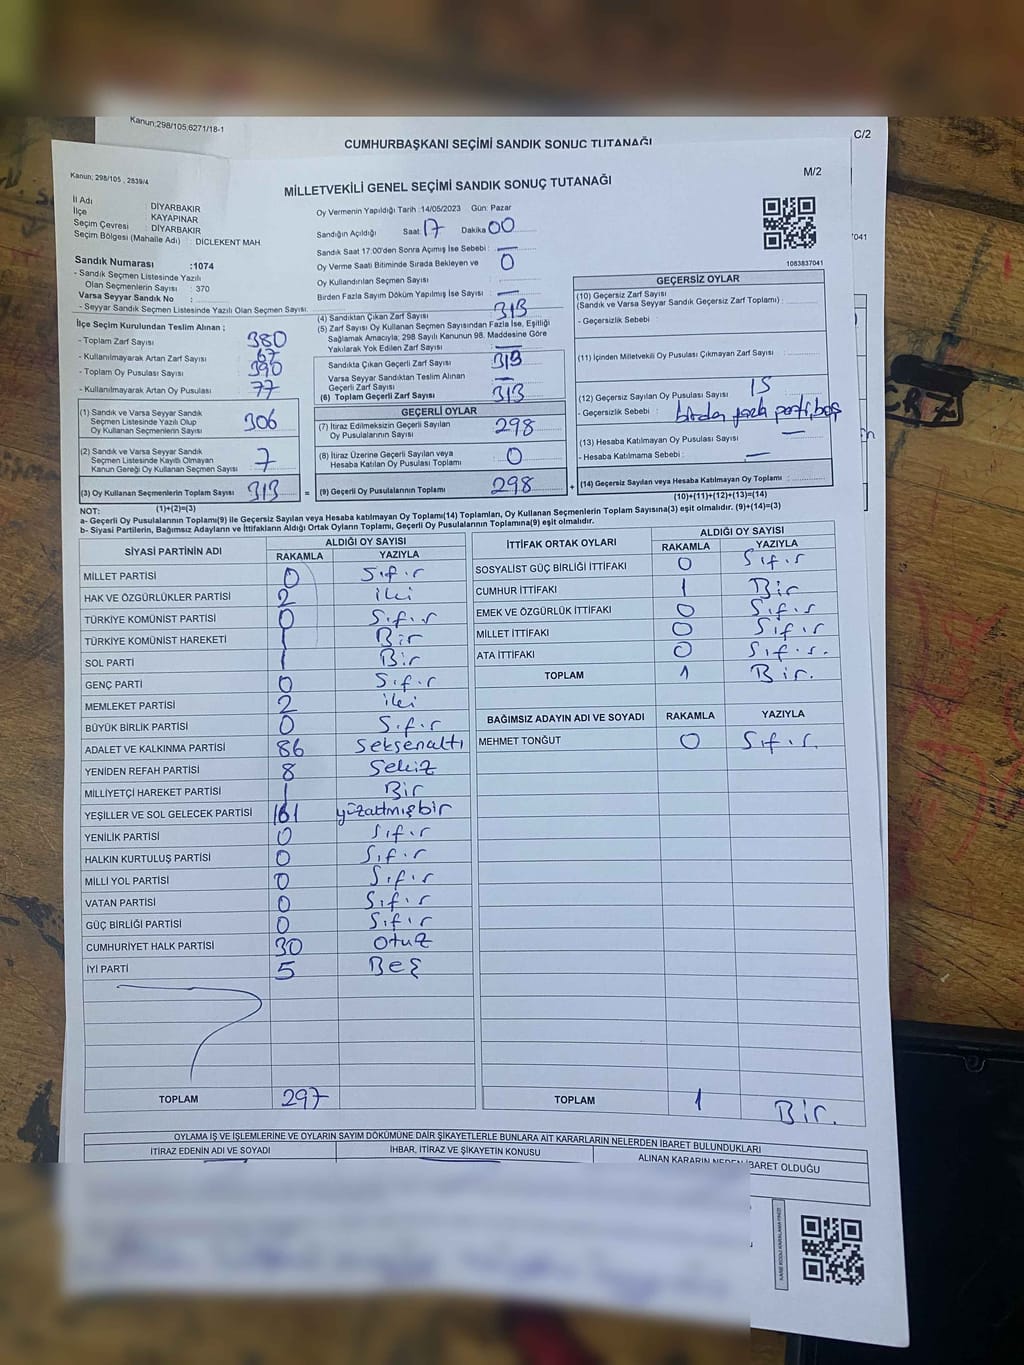 Kanun;298/105,6271/18-1
C/2
CUMHURBAŞKANI SEÇİMİ SANDIK SONUÇ TUTANAĞI
Kanun; 298/105 , 2839/4
M/2
MİLLETVEKİLİ GENEL SEÇİMİ SANDIK SONUÇ TUTANAĞI
İl Adı : DİYARBAKIR
İlçe : KAYAPINAR
Seçim Çevresi : DİYARBAKIR
Seçim Bölgesi (Mahalle Adı) : DİCLEKENT MAH.
Sandık Numarası :1074
- Sandık Seçmen Listesinde Yazılı
Olan Seçmenlerin Sayısı : 370
Varsa Seyyar Sandık No :
- Seyyar Sandık Seçmen Listesinde Yazılı Olan Seçmen Sayısı:
İlçe Seçim Kurulundan Teslim Alınan ;
- Toplam Zarf Sayısı 380
- Kullanılmayarak Artan Zarf Sayısı 67
- Toplam Oy Pusulası Sayısı 390
- Kullanılmayarak Artan Oy Pusulası 77
(1) Sandık ve Varsa Seyyar Sandık
Seçmen Listesinde Yazılı Olup
Oy Kullanan Seçmenlerin Sayısı 306
(2) Sandık ve Varsa Seyyar Sandık
Seçmen Listesinde Kayıtlı Olmayan
Kanun Gereği Oy Kullanan Seçmen Sayısı 7
(3) Oy Kullanan Seçmenlerin Toplam Sayısı 313
(1)+(2)=(3)
Oy Vermenin Yapıldığı Tarih :14/05/2023 Gün: Pazar
Sandığın Açıldığı Saat: 17 Dakika: 00
Sandık Saat 17:00'den Sonra Açımış İse Sebebi : —
Oy Verme Saati Bitiminde Sırada Bekleyen ve
Oy Kullandırılan Seçmen Sayısı : 0
Birden Fazla Sayım Döküm Yapılmış İse Sayısı : —
(4) Sandıktan Çıkan Zarf Sayısı : 313
(5) Zarf Sayısı Oy Kullanan Seçmen Sayısından Fazla İse, Eşitliği
Sağlamak Amacıyla; 298 Sayılı Kanunun 98. Maddesine Göre
Yakılarak Yok Edilen Zarf Sayısı —
Sandıkta Çıkan Geçerli Zarf Sayısı 313
Varsa Seyyar Sandıktan Teslim Alınan
Geçerli Zarf Sayısı —
(6) Toplam Geçerli Zarf Sayısı 313
GEÇERLİ OYLAR
(7) İtiraz Edilmeksizin Geçerli Sayılan
Oy Pusulalarının Sayısı 298
(8) İtiraz Üzerine Geçerli Sayılan veya
Hesaba Katılan Oy Pusulası Toplamı 0
= (9) Geçerli Oy Pusulalarının Toplamı 298 +
1083837041
041
GEÇERSİZ OYLAR
(10) Geçersiz Zarf Sayısı
(Sandık ve Varsa Seyyar Sandık Geçersiz Zarf Toplamı) :
- Geçersizlik Sebebi :
(11) İçinden Milletvekili Oy Pusulası Çıkmayan Zarf Sayısı :
(12) Geçersiz Sayılan Oy Pusulası Sayısı : 15
- Geçersizlik Sebebi : birden fazla parti, boş
(13) Hesaba Katılmayan Oy Pusulası Sayısı : —
- Hesaba Katılmama Sebebi : —
(14) Geçersiz Sayılan veya Hesaba Katılmayan Oy Toplamı :
(10)+(11)+(12)+(13)=(14)
NOT:
a- Geçerli Oy Pusulalarının Toplamı(9) ile Geçersiz Sayılan veya Hesaba katılmayan Oy Toplamı(14) Toplamları, Oy Kullanan Seçmenlerin Toplam Sayısına(3) eşit olmalıdır. (9)+(14)=(3)
b- Siyasi Partilerin, Bağımsız Adayların ve İttifakların Aldığı Ortak Oyların Toplamı, Geçerli Oy Pusulalarının Toplamına(9) eşit olmalıdır.
SİYASİ PARTİNİN ADI ALDIĞI OY SAYISI
RAKAMLA YAZIYLA
MİLLET PARTİSİ 0 Sıfır
HAK VE ÖZGÜRLÜKLER PARTİSİ 2 iki
TÜRKİYE KOMÜNİST PARTİSİ 0 Sıfır
TÜRKİYE KOMÜNİST HAREKETİ 1 Bir
SOL PARTİ 1 Bir
GENÇ PARTİ 0 Sıfır
MEMLEKET PARTİSİ 2 iki
BÜYÜK BİRLİK PARTİSİ 0 Sıfır
ADALET VE KALKINMA PARTİSİ 86 Seksenaltı
YENİDEN REFAH PARTİSİ 8 Sekiz
MİLLİYETÇİ HAREKET PARTİSİ 1 Bir
YEŞİLLER VE SOL GELECEK PARTİSİ 161 yüzatmışbir
YENİLİK PARTİSİ 0 Sıfır
HALKIN KURTULUŞ PARTİSİ 0 Sıfır
MİLLİ YOL PARTİSİ 0 Sıfır
VATAN PARTİSİ 0 Sıfır
GÜÇ BİRLİĞİ PARTİSİ 0 Sıfır
CUMHURİYET HALK PARTİSİ 30 Otuz
İYİ PARTİ 5 Beş
TOPLAM 297
İTTİFAK ORTAK OYLARI ALDIĞI OY SAYISI
RAKAMLA YAZIYLA
SOSYALİST GÜÇ BİRLİĞİ İTTİFAKI 0 Sıfır
CUMHUR İTTİFAKI 1 Bir
EMEK VE ÖZGÜRLÜK İTTİFAKI 0 Sıfır
MİLLET İTTİFAKI 0 Sıfır
ATA İTTİFAKI 0 Sıfır.
TOPLAM 1 Bir.
BAĞIMSIZ ADAYIN ADI VE SOYADI RAKAMLA YAZIYLA
MEHMET TONĞUT 0 Sıfır.
TOPLAM 1 Bir.
OYLAMA İŞ VE İŞLEMLERİNE VE OYLARIN SAYIM DÖKÜMÜNE DAİR ŞİKAYETLERLE BUNLARA AİT KARARLARIN NELERDEN İBARET BULUNDUKLARI
İTİRAZ EDENİN ADI VE SOYADI İHBAR, İTİRAZ VE ŞİKAYETİN KONUSU ALINAN KARARIN NEDEN İBARET OLDUĞU